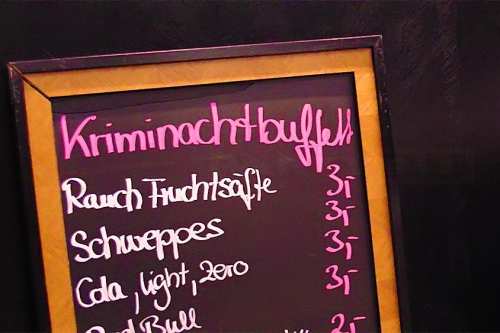 Kriminachtbuffet
Rauch Fruchtsäfte 3,-
3,-
Schweppes 3,-
Cola, light, zero 3,-
Red Bull 2,-